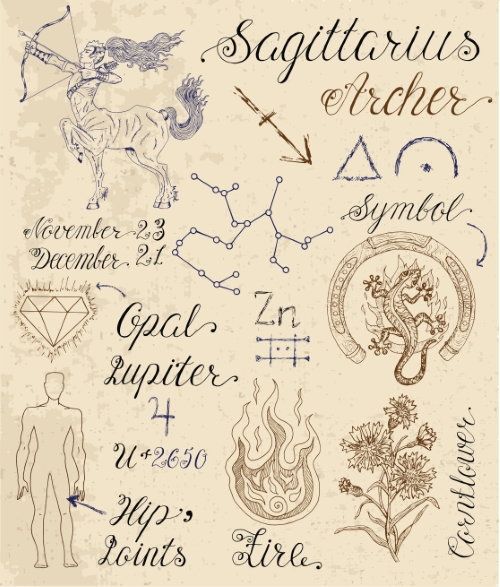 Sagittarius
Archer
November 23
December 21
Symbol
Opal
Zn
Jupiter
♃
U+2650
Hip,
Joints
Fire
Cornflower